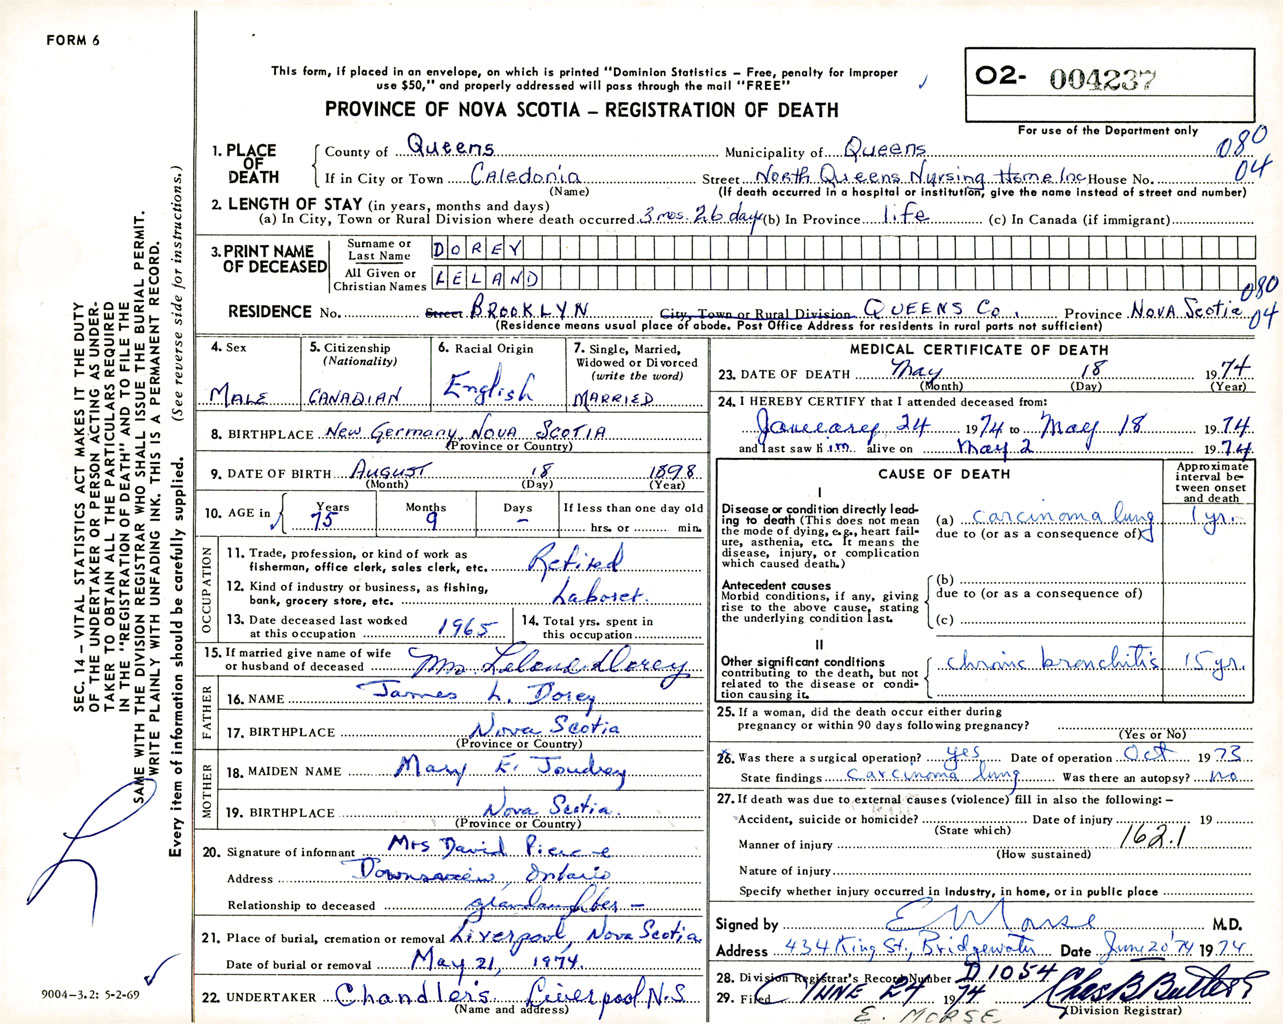 FORM 6
This form, if placed in an envelope, on which is printed "Dominion Statistics – Free, penalty for improper
use $50," and properly addressed will pass through the mail "FREE"
PROVINCE OF NOVA SCOTIA – REGISTRATION OF DEATH
O2- 004237
For use of the Department only
080
04
1. PLACE OF DEATH
County of Queens Municipality of Queens
If in City or Town Caledonia Street North Queens Nursing Home Inc House No.
(Name) (If death occurred in a hospital or institution, give the name instead of street and number)
2. LENGTH OF STAY (in years, months and days)
(a) In City, Town or Rural Division where death occurred 3 mos. 26 days (b) In Province life (c) In Canada (if immigrant)
3. PRINT NAME OF DECEASED
Surname or Last Name DOREY
All Given or Christian Names LELAND
080
04
RESIDENCE No. Street BROOKLYN City, Town or Rural Division QUEENS Co. Province NOVA SCOTIA
(Residence means usual place of abode. Post Office Address for residents in rural parts not sufficient)
4. Sex
MALE
5. Citizenship
(Nationality)
CANADIAN
6. Racial Origin
English
7. Single, Married,
Widowed or Divorced
(write the word)
MARRIED
8. BIRTHPLACE New Germany, NOVA SCOTIA
(Province or Country)
9. DATE OF BIRTH AUGUST 18 1898
(Month) (Day) (Year)
10. AGE in
Years Months Days If less than one day old
75 9 – hrs. or min.
OCCUPATION
11. Trade, profession, or kind of work as
fisherman, office clerk, sales clerk, etc. Retired
12. Kind of industry or business, as fishing,
bank, grocery store, etc. Laborer.
13. Date deceased last worked
at this occupation 1965
14. Total yrs. spent in
this occupation
15. If married give name of wife
or husband of deceased Mrs Leland Dorey
FATHER
16. NAME James L. Dorey
17. BIRTHPLACE Nova Scotia
(Province or Country)
MOTHER
18. MAIDEN NAME Mary E. Joudrey
19. BIRTHPLACE Nova Scotia.
(Province or Country)
20. Signature of informant Mrs David Pierce
Address Downsview, Ontario
Relationship to deceased grandaughter –
21. Place of burial, cremation or removal Liverpool, Nova Scotia
Date of burial or removal May 21, 1974.
22. UNDERTAKER Chandler's Liverpool N.S
(Name and address)
MEDICAL CERTIFICATE OF DEATH
23. DATE OF DEATH May 18 1974
(Month) (Day) (Year)
24. I HEREBY CERTIFY that I attended deceased from:
January 24 1974 to May 18 1974
and last saw him alive on May 2 1974
CAUSE OF DEATH
Approximate
interval be-
tween onset
and death
I
Disease or condition directly lead-
ing to death (This does not mean
the mode of dying, e.g., heart fail-
ure, asthenia, etc. It means the
disease, injury, or complication
which caused death.)
(a) carcinoma lung 1 yr.
due to (or as a consequence of)
Antecedent causes
Morbid conditions, if any, giving
rise to the above cause, stating
the underlying condition last.
(b)
due to (or as a consequence of)
(c)
II
Other significant conditions
contributing to the death, but not
related to the disease or condi-
tion causing it.
chronic bronchitis 15 yr.
25. If a woman, did the death occur either during
pregnancy or within 90 days following pregnancy?
(Yes or No)
26. Was there a surgical operation? yes Date of operation Oct 1973
State findings carcinoma lung Was there an autopsy? no
27. If death was due to external causes (violence) fill in also the following: –
Accident, suicide or homicide? Date of injury 19
(State which)
162.1
Manner of injury
(How sustained)
Nature of injury
Specify whether injury occurred in industry, in home, or in public place
Signed by E Morse M.D.
Address 434 King St., Bridgewater Date June 20 '74 1974
28. Division Registrar's Record Number D 1054
29. Filed JUNE 24 1974 Chas B Butler
(Division Registrar)
E. MORSE
SEC. 14 – VITAL STATISTICS ACT MAKES IT THE DUTY
OF THE UNDERTAKER OR PERSON ACTING AS UNDER-
TAKER TO OBTAIN ALL THE PARTICULARS REQUIRED
IN THE "REGISTRATION OF DEATH" AND TO FILE THE
SAME WITH THE DIVISION REGISTRAR WHO SHALL ISSUE THE BURIAL PERMIT.
WRITE PLAINLY WITH UNFADING INK. THIS IS A PERMANENT RECORD.
Every item of information should be carefully supplied. (See reverse side for instructions.)
9004-3.2: 5-2-69